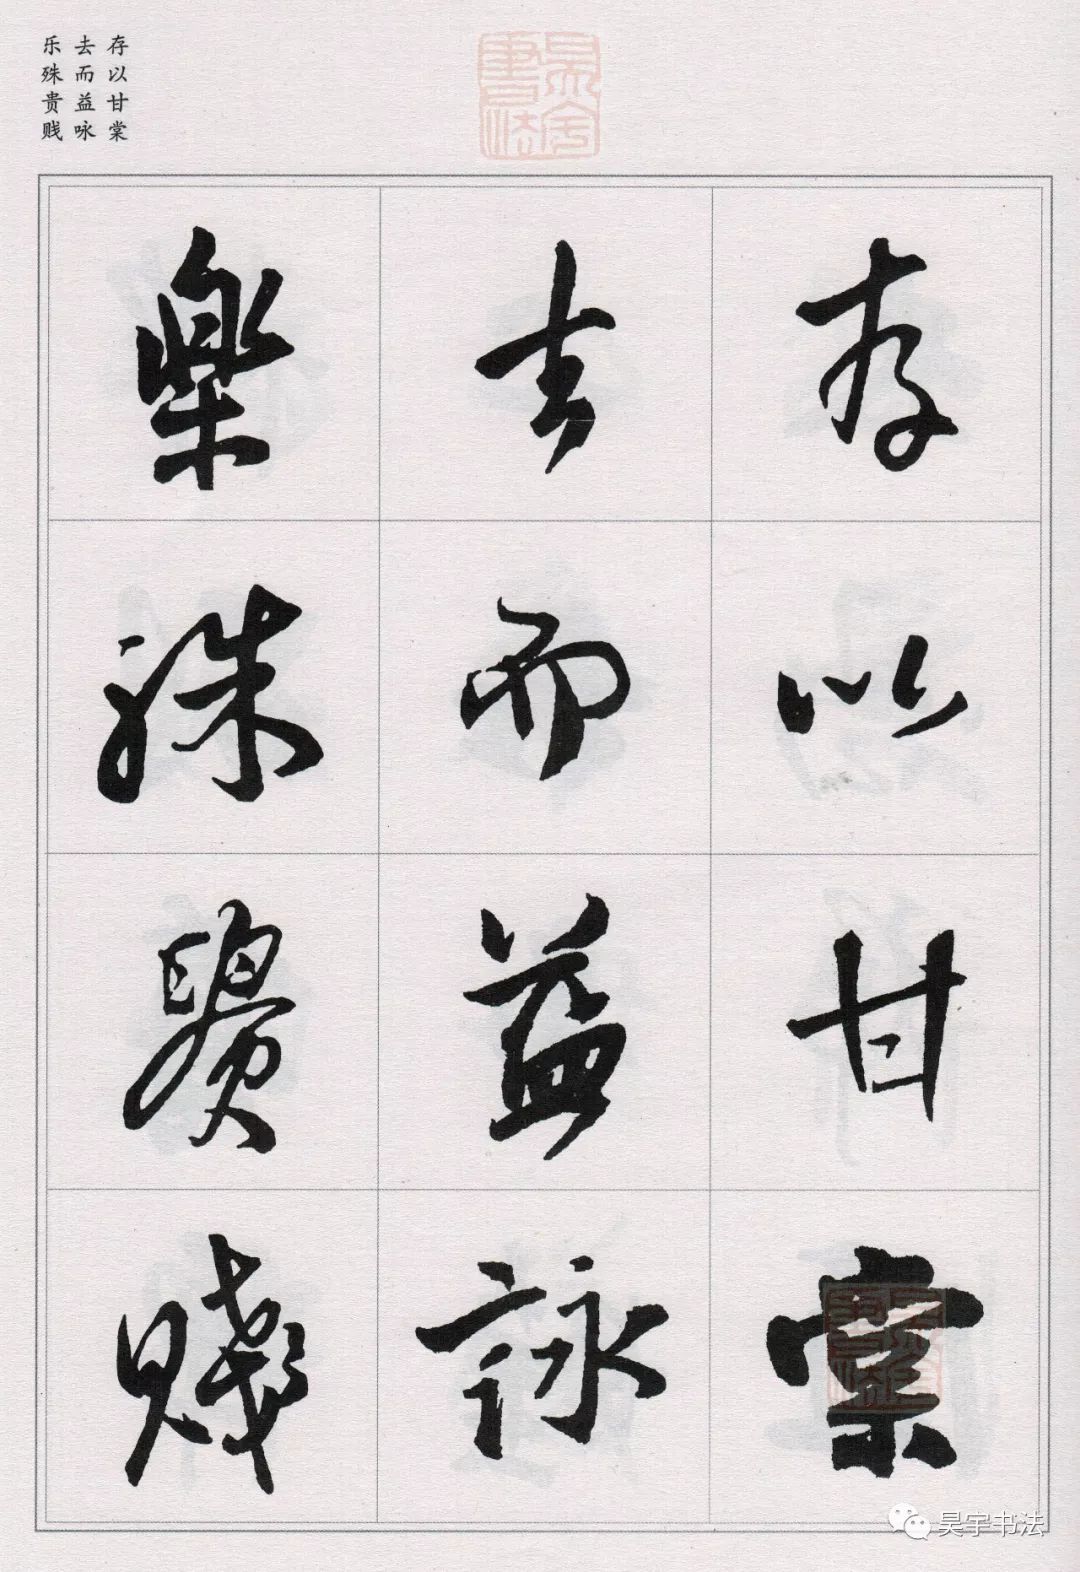 存以甘棠
去而益咏
乐殊贵贱
存以甘棠
去而益詠
樂殊貴賤
昊宇书法